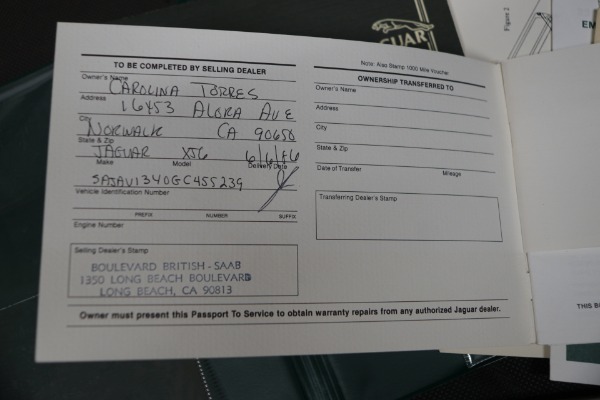 JAGUAR
Figure 2
EM
TO BE COMPLETED BY SELLING DEALER
Owner's Name
CAROLINA TORRES
Address
16453 ALORA AVE
City
NORWALK CA 90650
State & Zip
JAGUAR XJ6 6/6/86
Make Model Delivery Date
SAJAV1340GC455239
Vehicle Identification Number
PREFIX NUMBER SUFFIX
Engine Number
Selling Dealer's Stamp
BOULEVARD BRITISH - SAAB
1350 LONG BEACH BOULEVARD
LONG BEACH, CA 90813
Note: Also Stamp 1000 Mile Voucher
OWNERSHIP TRANSFERRED TO
Owner's Name
Address
City
State & Zip
Date of Transfer Mileage
Transferring Dealer's Stamp
Owner must present this Passport To Service to obtain warranty repairs from any authorized Jaguar dealer.
THIS B